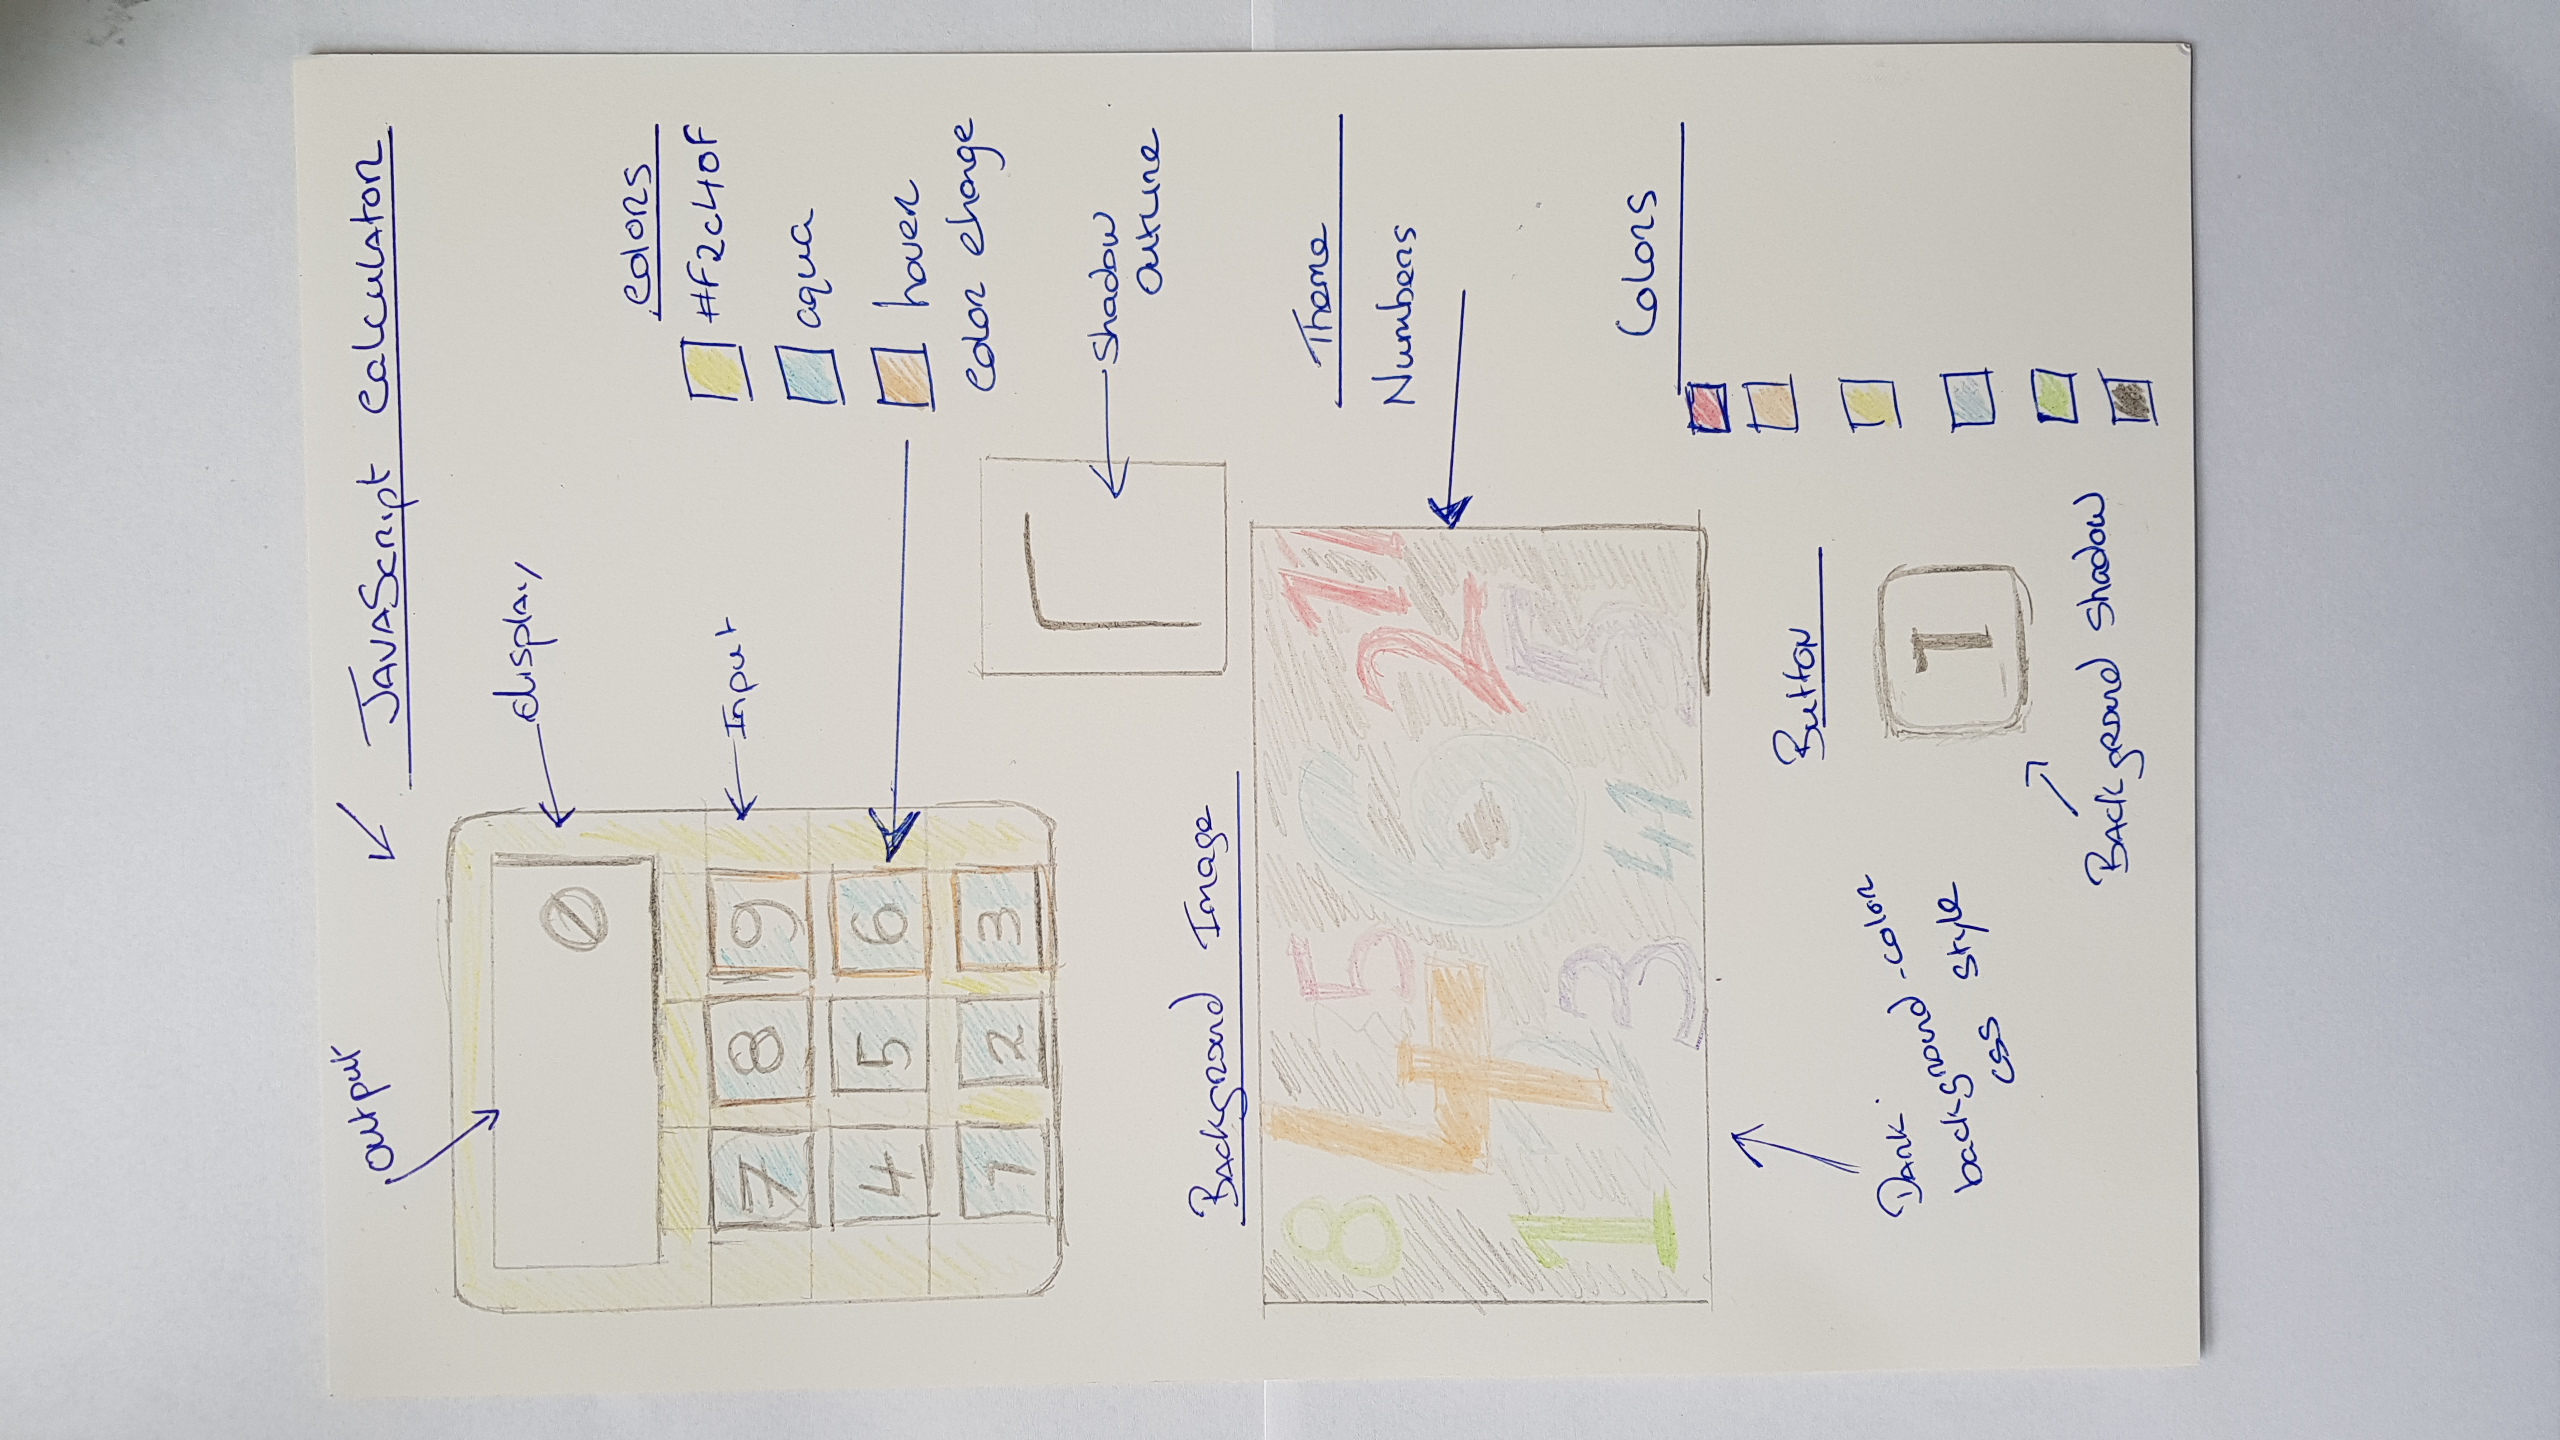 output
JavaScript Calculator
0
display
7 8 9
Input
4 5 6
1 2 3
colors
#F2c40F
aqua
hover
color change
Shadow
outline
Background Image
8 4 5 6 2 11
1 3 41 5
Theme
Numbers
Dark
background-color
css style
Button
1
Background shadow
Colors